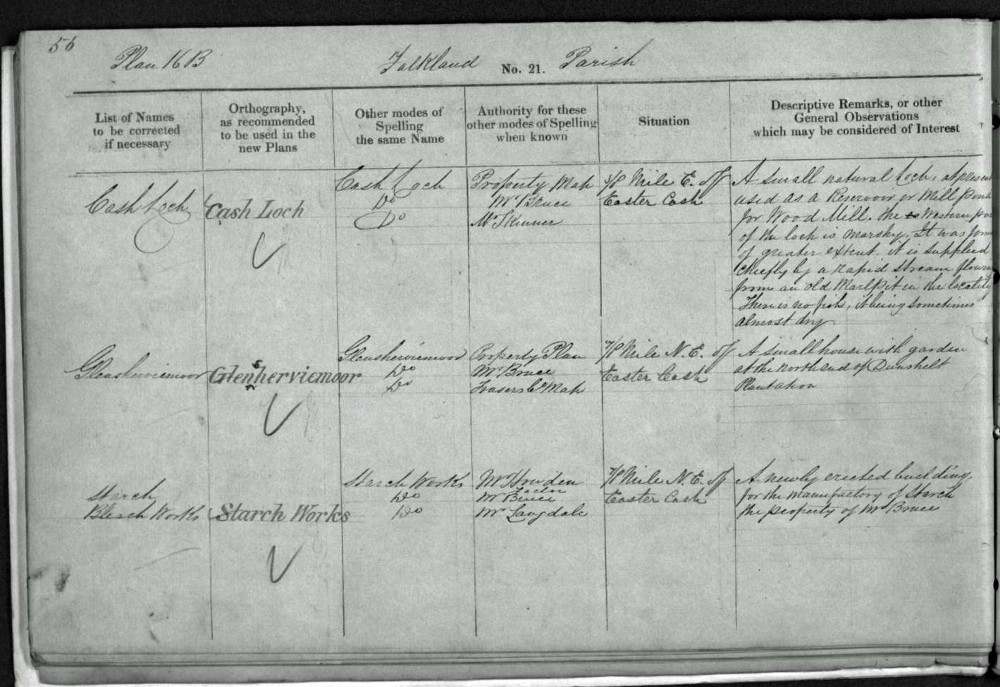 56
Plan 16B Falkland No. 21. Parish
List of Names
to be corrected
if necessary
Orthography,
as recommended
to be used in the
new Plans
Other modes of
Spelling
the same Name
Authority for these
other modes of Spelling
when known
Situation
Descriptive Remarks, or other
General Observations
which may be considered of Interest
Cash Loch
Cash Loch
Cash Loch
Do
Do
Property Map
Mr Bruce
Mr Skinner
Mile E. of
Easter Cash
A small natural Loch, at presen
used as a Reservoir or Mill Pond
for Wood Mill. the Western por
of the loch is marshy. It was form
of greater extent. it is supplied
chiefly by a rapid stream flowing
from an old Marl Pit in the locality
There is no fish, it being sometimes
almost dry
Glenshervicmoor
Glenshervicmoor
Glenshervicmoor
Do
Do
Property Plan
Mr Bruce
Frasers Co. Map
Mile N.E. of
Easter Cash
A small house with garden
at the north end of Dunshelt
Plantation
Starch
Bleach Works
Starch Works
Starch Works
Do
Do
Mr Howden
Factor
Mr Bruce
Mr Langdale
Mile N.E. of
Easter Cash
A newly erected building
for the Manufactory of Starch
the property of Mr Bruce